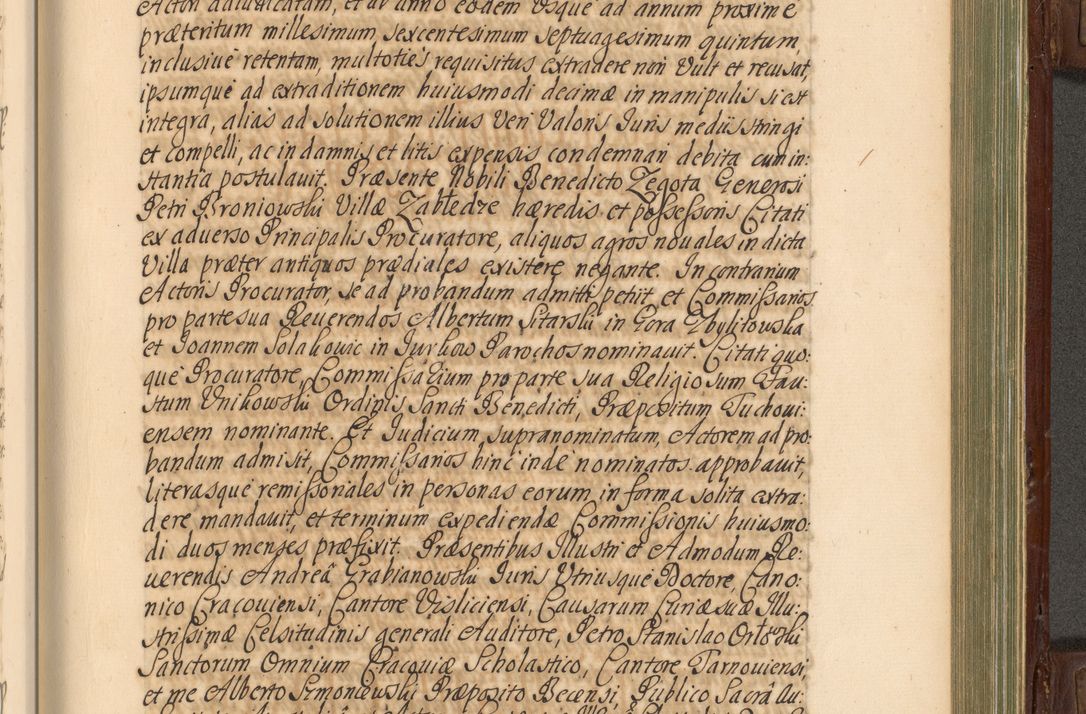 Actori adiudicatam, et ab anno eodem usque ad annum proxime
præteritum millesimum, sexcentesimum septuagesimum quintum,
inclusiue retentam, multoties requisitus extradere non vult et recusat,
ipsumque ad extraditionem huiusmodi decimæ in manipulis si est
integra, alias ad solutionem illius veri valoris Iuris medijs stringi
et compelli, ac in damnis et litis expensis condemnari debita cum in:
stantia postulauit. Præsente Nobili Benedicto Zegota Generosi
Petri Broniowski Villæ Zabłedze hæredis et possessoris Citati
ex aduerso Principalis Procuratore, aliquos agros nouales in dicta
Villa præter antiquos prædiales existere negante. In contrarium
Actoris Procurator, se ad probandum admitti petijt, et Commissarios
pro parte sua Reuerendos Albertum Sitarski in Gora Zbylitowska
et Joannem Solakowic in Jurkow Parochos nominauit. Citati quo:
que Procuratore, Commissarium pro parte sua Religiosum Fau:
stum Unikowski Ordinis Sancti Benedicti, Præpositum Tuchoui:
ensem nominante. Et Iudicium, supranominatum, Actorem ad pro:
bandum admisit, Commissarios hinc inde nominatos approbauit,
literasque remissoriales in personas eorum, in forma solita extra:
dere mandauit, et terminum expediendæ Commissionis huiusmo:
di duos menses præfixit. Præsentibus Illustri et Admodum Re:
uerendis Andrea Grabianowski Iuris Utriusque Doctore, Cano:
nico Cracouiensi, Cantore Visliciensi, Causarum Curiæ suæ Illu:
strissimæ Celsitudinis generali Auditore, Petro Stanislao Orłowski
Sanctorum Omnium Cracouiæ Scholastico, Cantore Tarnouiensi,
et me Alberto Szmoniewski Præposito Becensi, Publico Sacra Au: